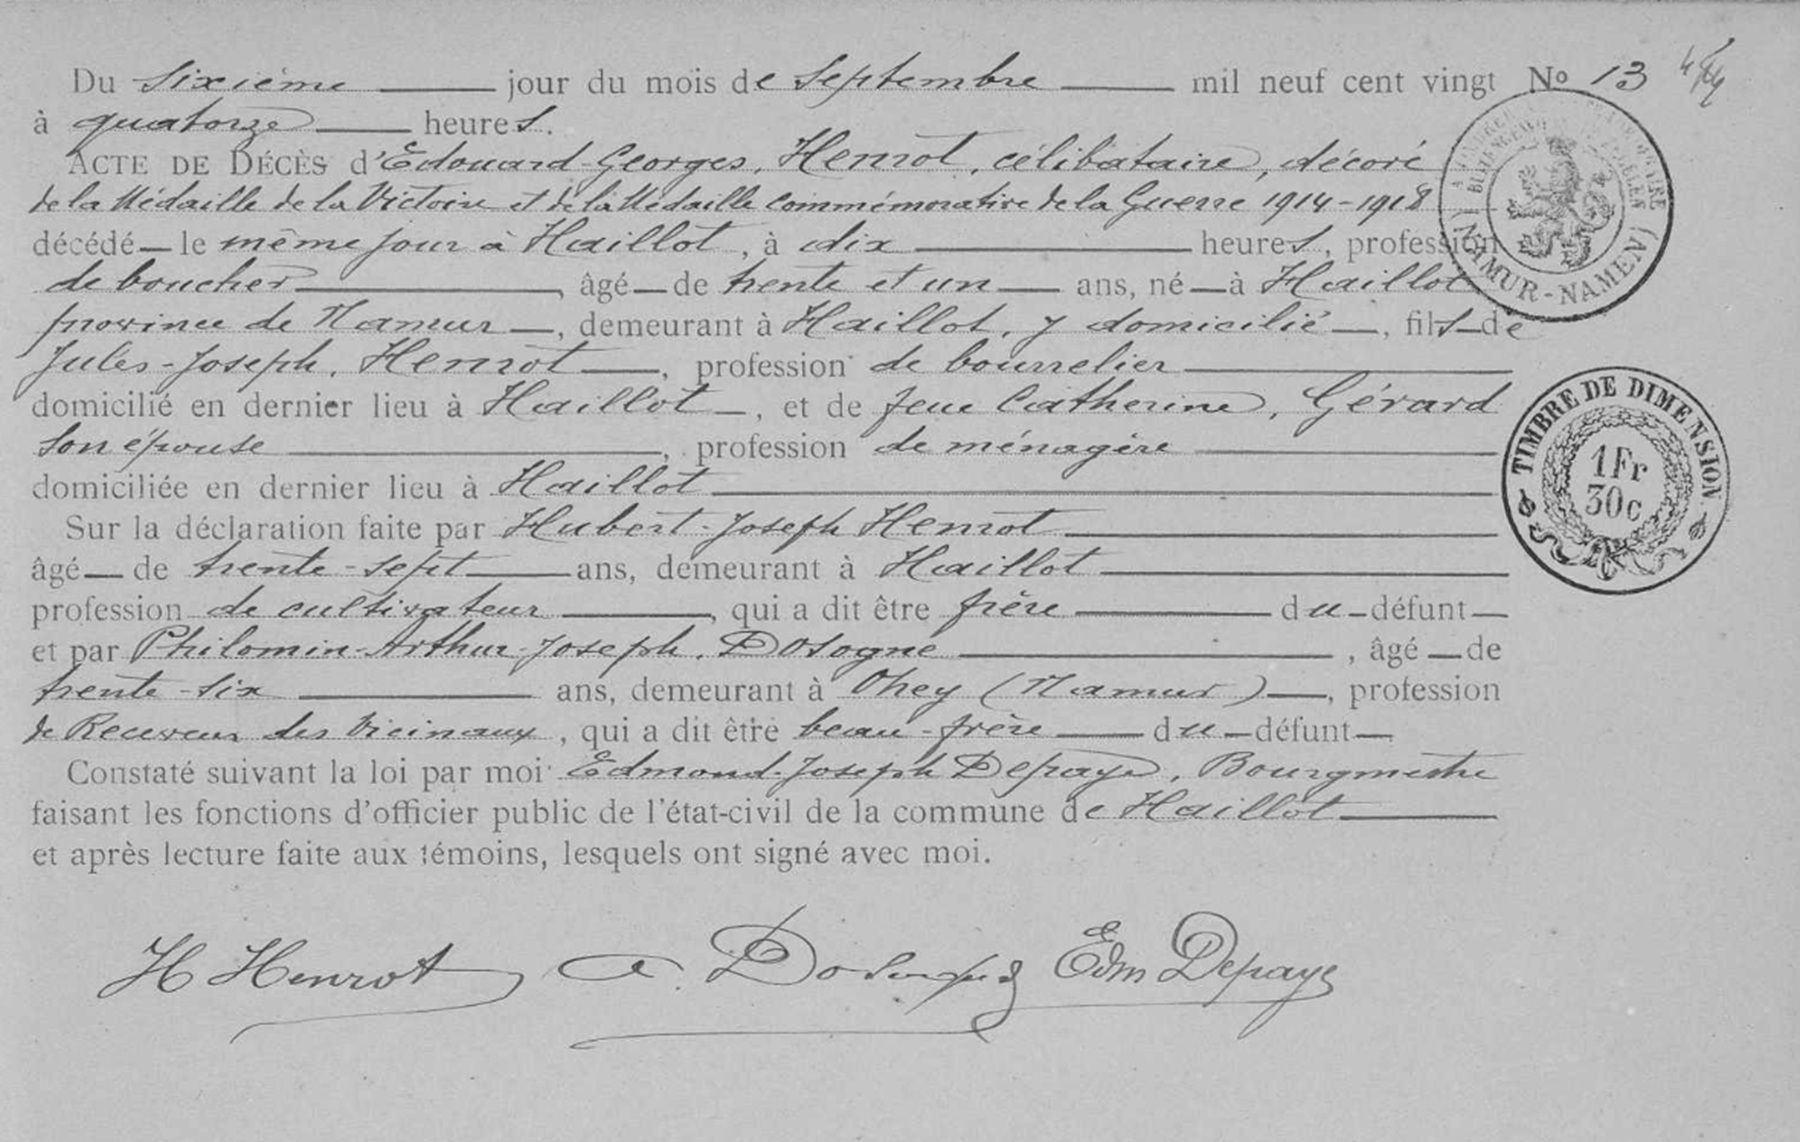 Du sixième jour du mois de Septembre mil neuf cent vingt No 13
à quatorze heures.
ACTE DE DÉCÈS d'Edouard-Georges, Henrot, célibataire, décoré
de la Médaille de la Victoire et de la Médaille commémorative de la Guerre 1914-1918
décédé le même jour à Haillot, à dix heures, profession
de boucher, âgé de trente et un ans, né à Haillot
province de Namur, demeurant à Haillot, y domicilié, fils de
Jules-Joseph, Henrot, profession de bourrelier
domicilié en dernier lieu à Haillot, et de feue Catherine, Gérard
son épouse, profession de ménagère
domiciliée en dernier lieu à Haillot
Sur la déclaration faite par Hubert-Joseph Henrot
âgé de trente-sept ans, demeurant à Haillot
profession de cultivateur, qui a dit être frère du défunt
et par Philomin-Arthur-Joseph, Dosogne, âgé de
trente-six ans, demeurant à Ohey (Namur), profession
de Receveur des Vicinaux, qui a dit être beau-frère du défunt
Constaté suivant la loi par moi Edmond-Joseph Depaye, Bourgmestre
faisant les fonctions d'officier public de l'état-civil de la commune de Haillot
et après lecture faite aux témoins, lesquels ont signé avec moi.
H Henrot A. Dosogne Edm Depaye
NAMUR-NAMEN
TIMBRE DE DIMENSION
1Fr
30c